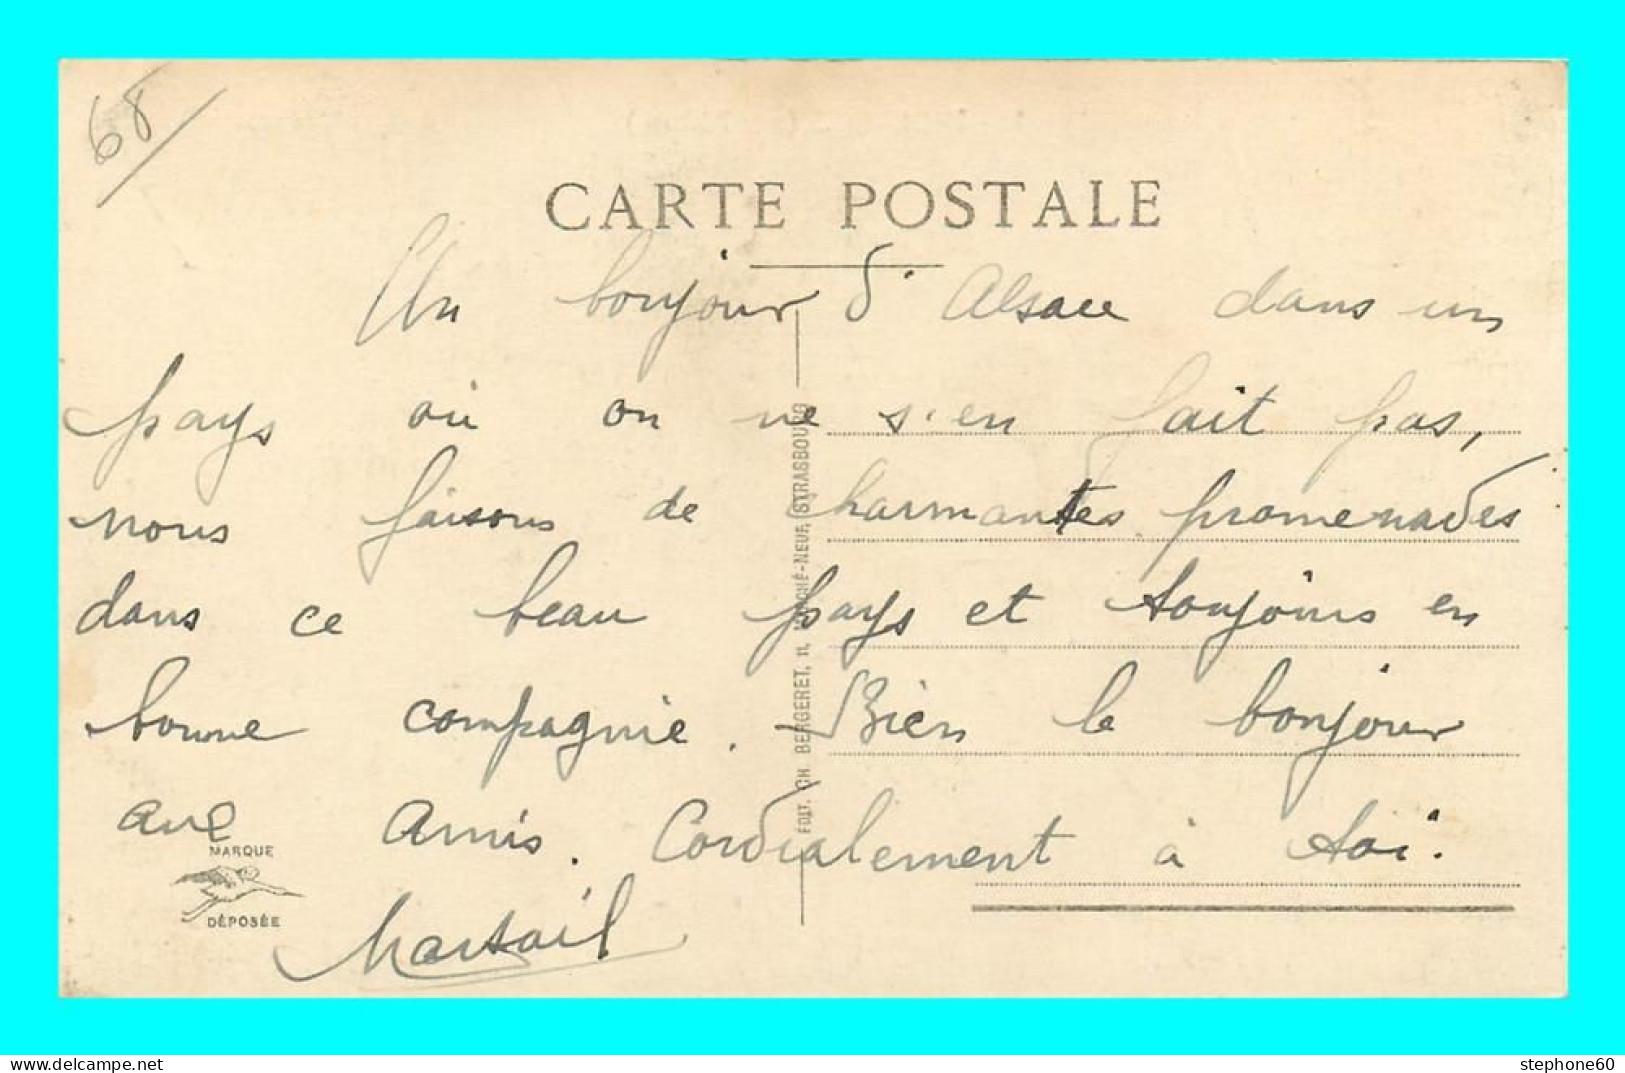 68
CARTE POSTALE
Un bonjour d'Alsace dans un
pays où on ne s'en fait pas,
nous faisons de charmantes promenades
dans ce beau pays et toujours en
bonne compagnie. Bien le bonjour
aux Amis. Cordialement à toi.
MARQUE
DÉPOSÉE
EDIT. CH. BERGERET, 11, MARCHÉ-NEUF, STRASBOURG
www.delcampe.net
stephone60